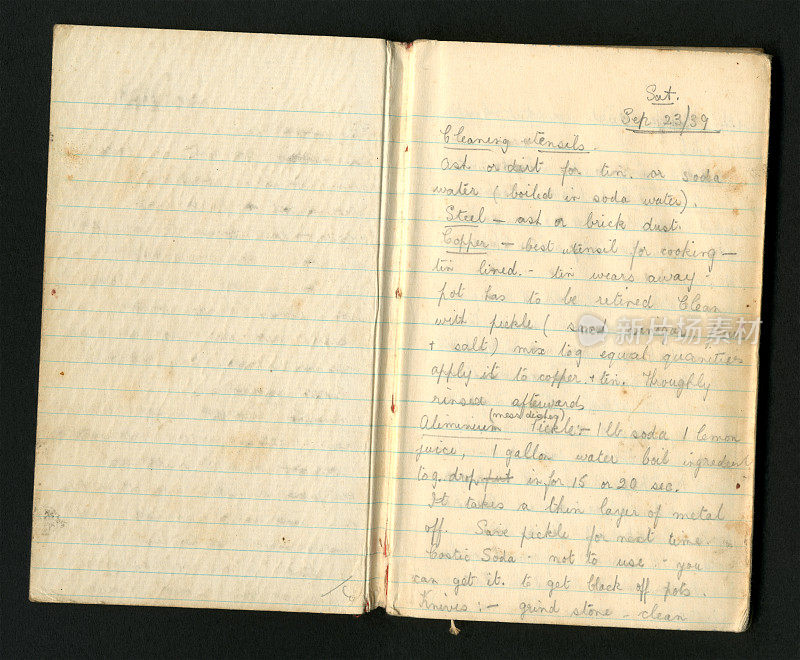 Sat.
Sep 23/39
Cleaning utensils.
Ash or dirt for tin. or soda
water (boiled in soda water).
Steel – ash or brick dust.
Copper – best utensil for cooking –
tin lined. – tin wears away
pot has to be retined Clean
with pickle (
+ salt) mix tog equal quantities
apply it to copper + tin. throughly
rinsed afterwards
Aluminium Pickle:– 1 lb soda 1 lemon
juice, 1 gallon water boil ingredient
tog. drop put in for 15 or 20 sec.
It takes a thin layer of metal
off. Save pickle for next time.
Costic Soda – not to use – you
can get it. to get black off pots.
Knives :– grind stone – clean
新片场素材